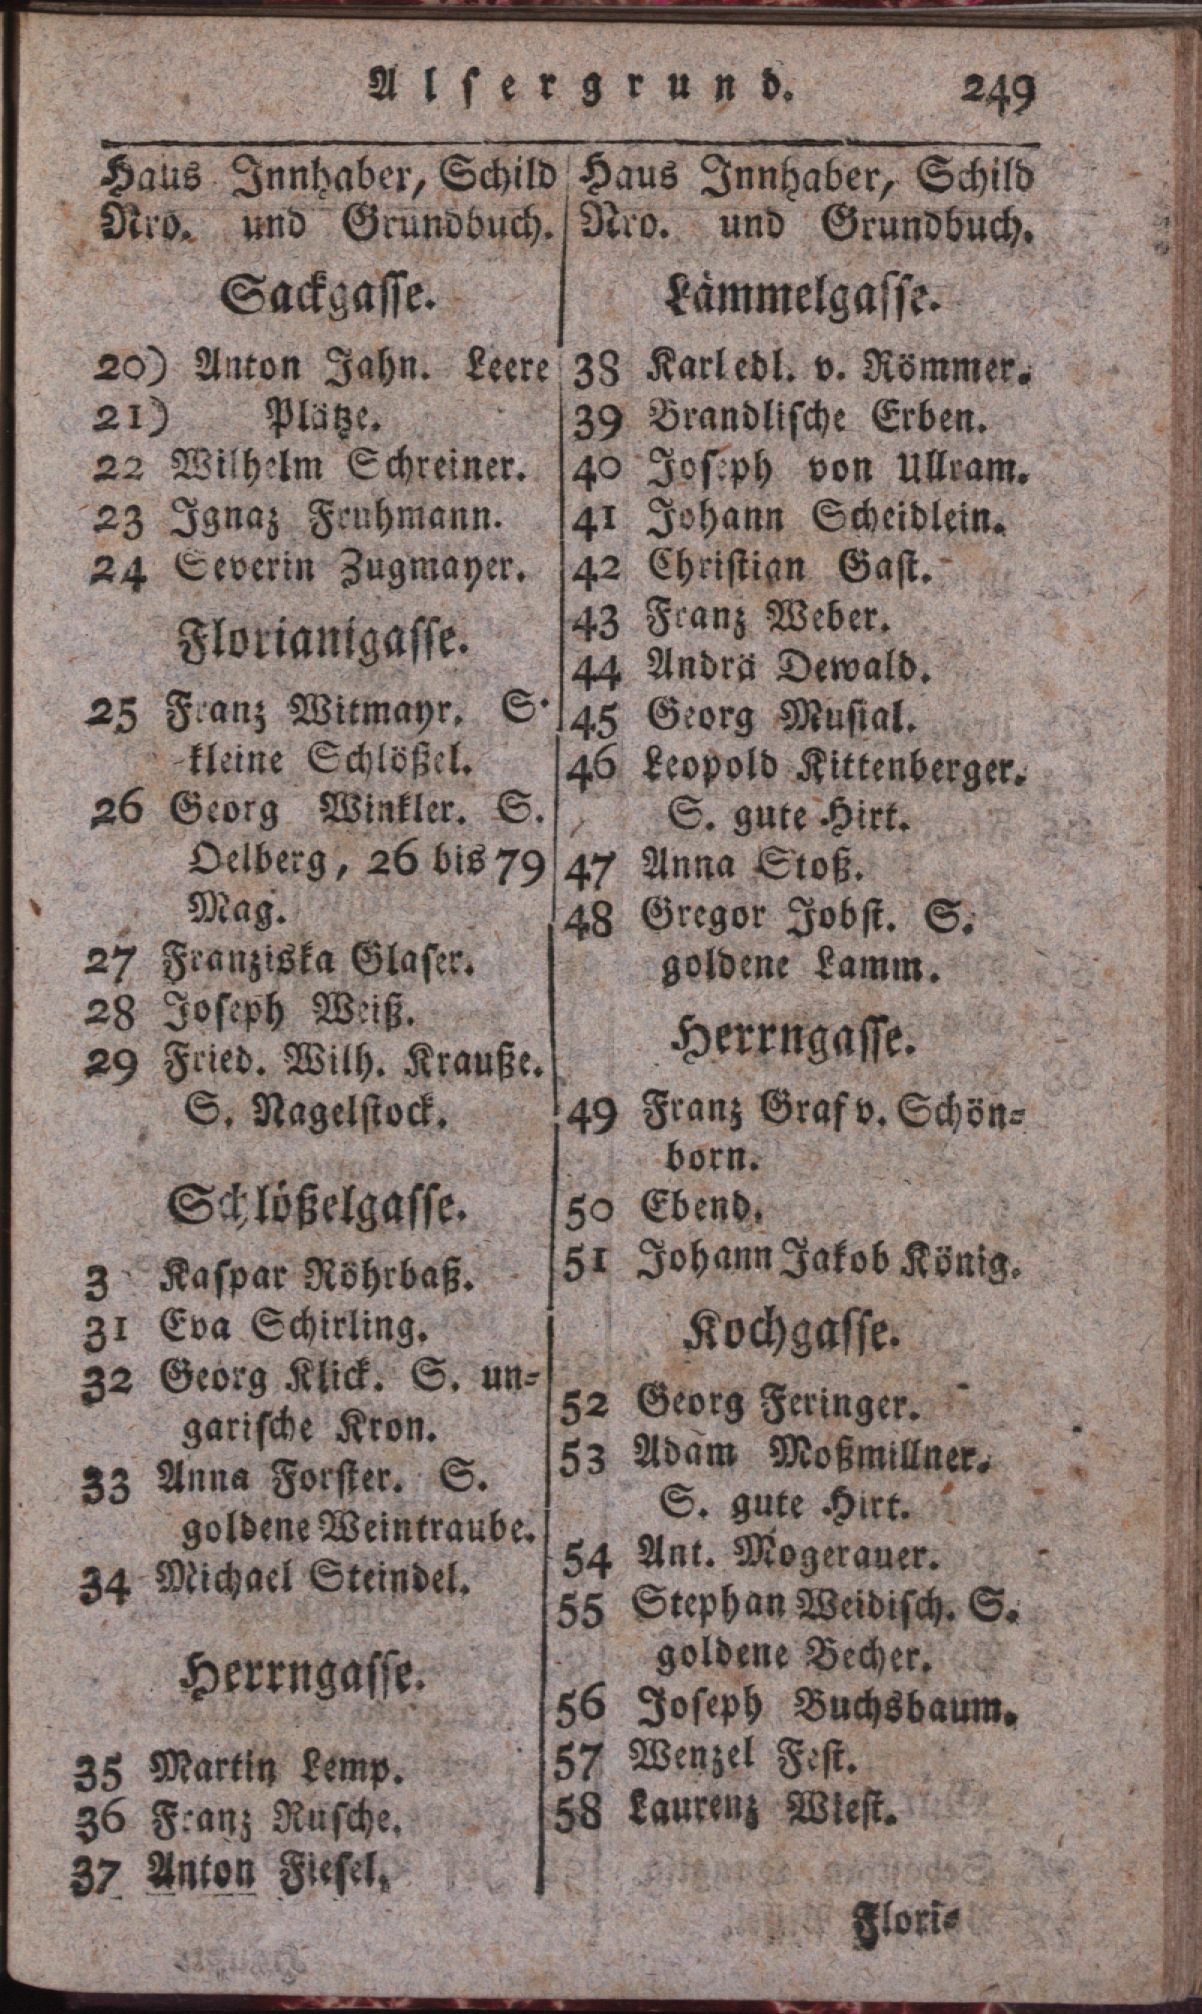 Alsergrund. 249
Haus Innhaber, Schild
Nro. und Grundbuch.
Sackgasse.
20) Anton Jahn. Leere
21) Plätze.
22 Wilhelm Schreiner.
23 Ignaz Fruhmann.
24 Severin Zugmayer.
Florianigasse.
25 Franz Witmayr. S.
kleine Schlößel.
26 Georg Winkler. S.
Oelberg, 26 bis 79
Mag.
27 Franziska Glaser.
28 Joseph Weiß.
29 Fried. Wilh. Krauße.
S. Nagelstock.
Schlößelgasse.
3 Kaspar Röhrbaß.
31 Eva Schirling.
32 Georg Klick. S. un-
garische Kron.
33 Anna Forster. S.
goldene Weintraube.
34 Michael Steindel.
Herrngasse.
35 Martin Lemp.
36 Franz Rusche.
37 Anton Fiesel.
Haus Innhaber, Schild
Nro. und Grundbuch.
Lämmelgasse.
38 Karl edl. v. Römmer.
39 Brandlische Erben.
40 Joseph von Ullram.
41 Johann Scheidlein.
42 Christian Gast.
43 Franz Weber.
44 Andrä Dewald.
45 Georg Musial.
46 Leopold Kittenberger.
S. gute Hirt.
47 Anna Stoß.
48 Gregor Jobst. S.
goldene Lamm.
Herrngasse.
49 Franz Graf v. Schön-
born.
50 Ebend.
51 Johann Jakob König.
Kochgasse.
52 Georg Feringer.
53 Adam Moßmillner.
S. gute Hirt.
54 Ant. Mogerauer.
55 Stephan Weidisch. S.
goldene Becher.
56 Joseph Buchsbaum.
57 Wenzel Fest.
58 Laurenz Wiest.
Flori-